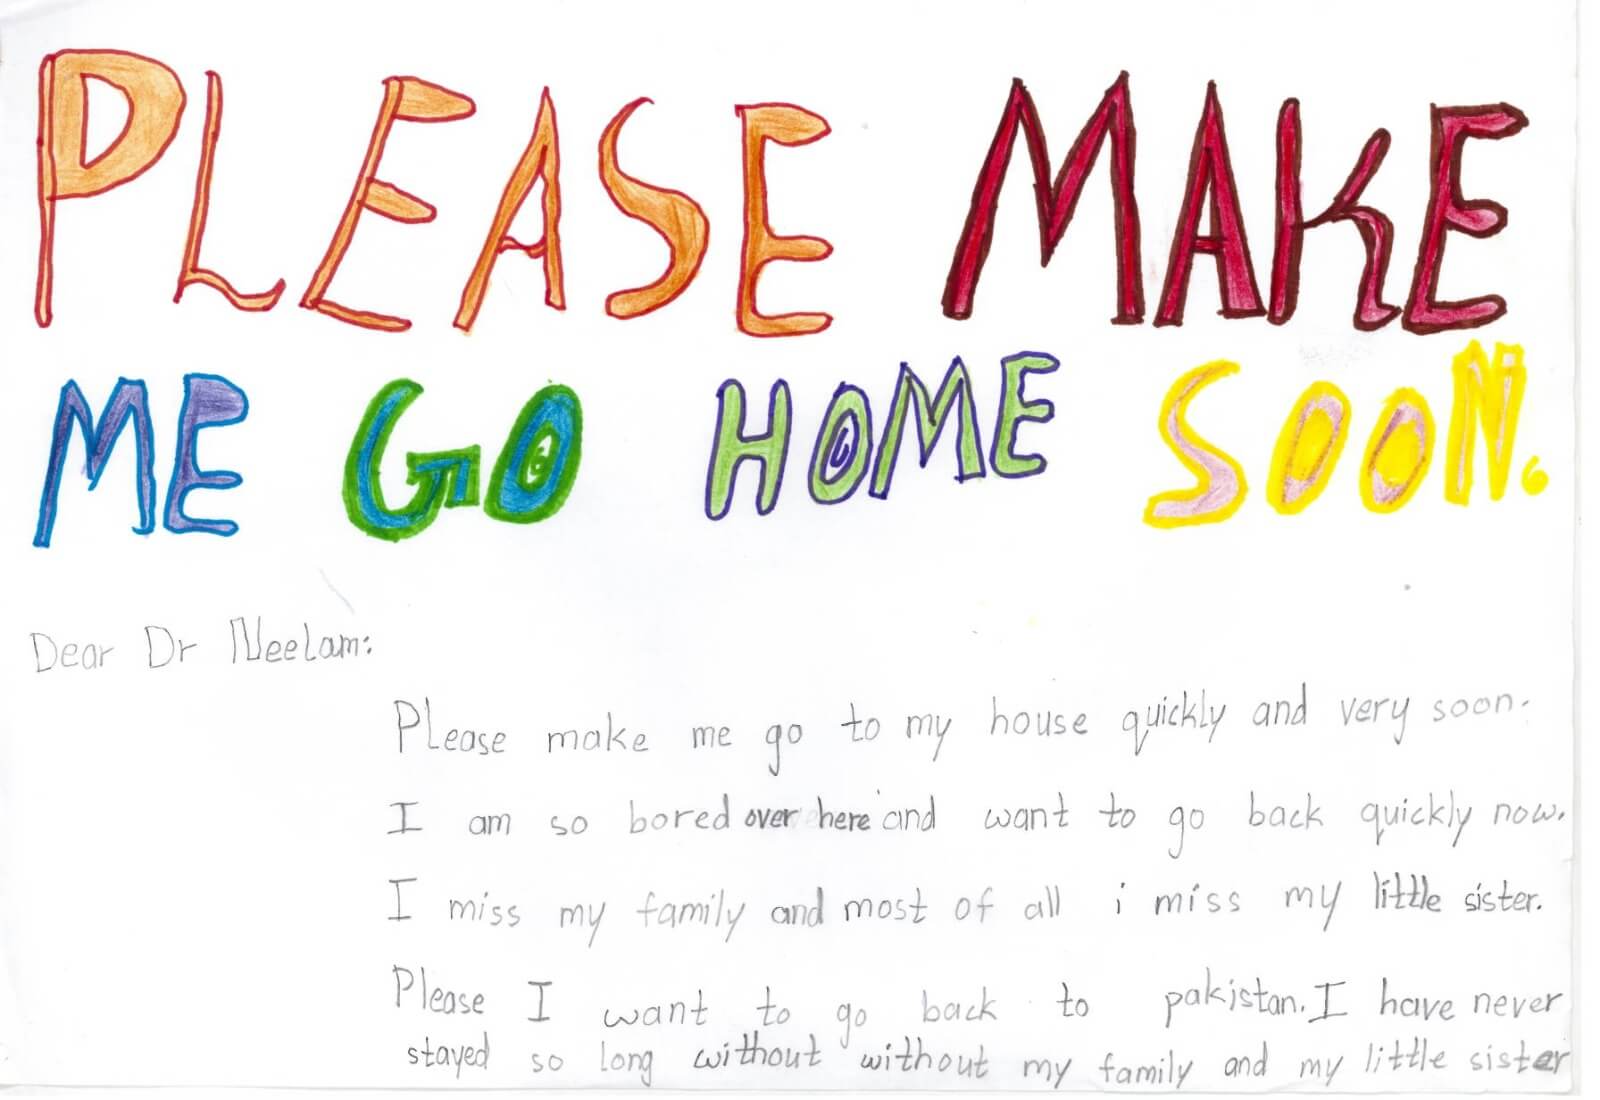 PLEASE MAKE
ME GO HOME SOON.
Dear Dr Neelam:
Please make me go to my house quickly and very soon.
I am so bored over here and want to go back quickly now.
I miss my family and most of all i miss my little sister.
Please I want to go back to pakistan. I have never
stayed so long without without my family and my little sister